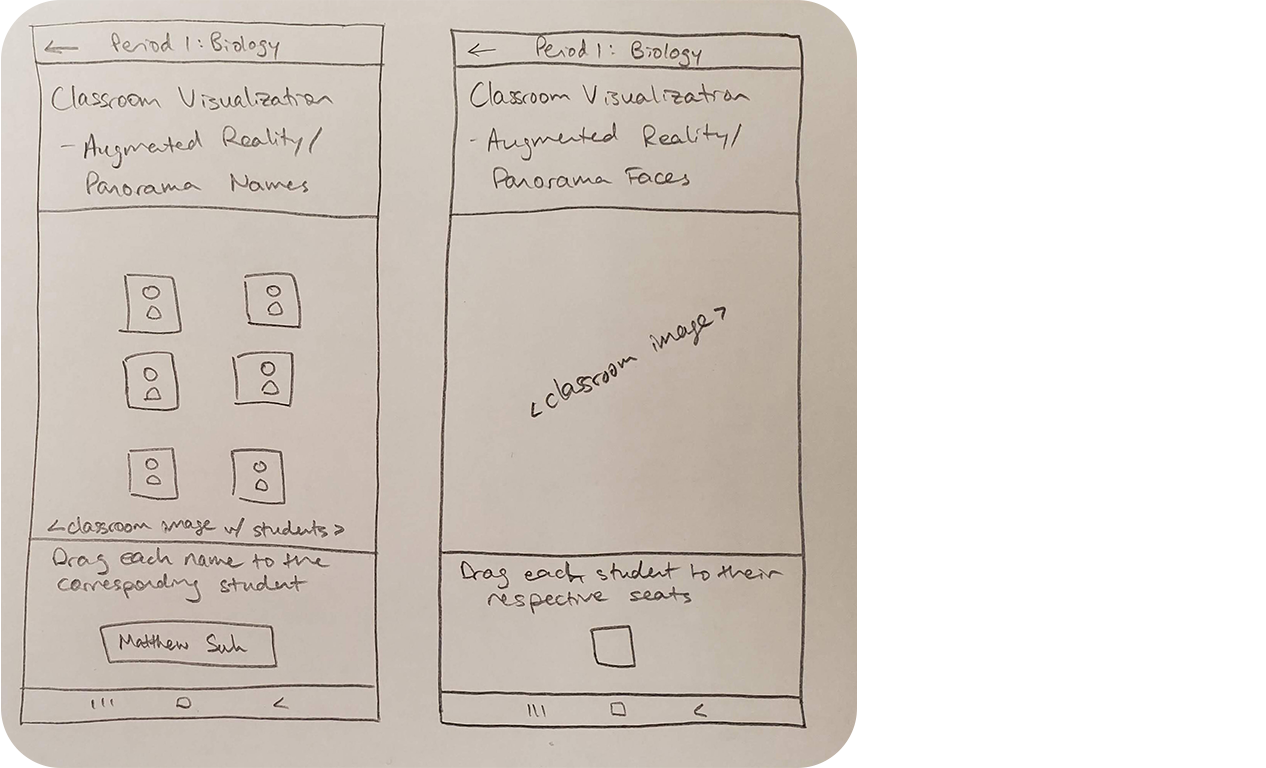 Period 1: Biology
Classroom Visualization
- Augmented Reality/
Panorama Names
<classroom image w/ students>
Drag each name to the
corresponding student
Matthew Suh
Period 1: Biology
Classroom Visualization
- Augmented Reality/
Panorama Faces
<classroom image>
Drag each student to their
respective seats